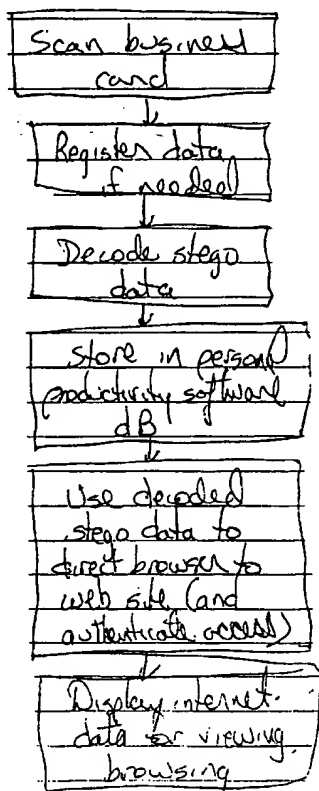 Scan business
card
Register data
if needed
Decode stego
data
store in personal
productivity software
dB
Use decoded
stego data to
direct browser to
web site (and
authenticate access)
Display internet
data for viewing
browsing